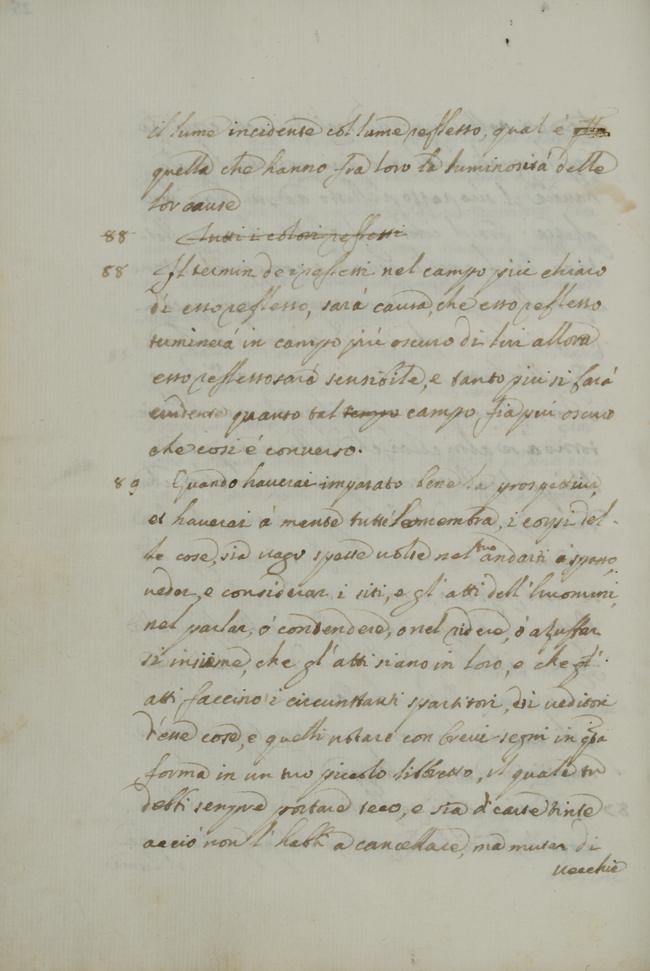 il lume incidente col lume reflesso, qual é
quella che hanno fra loro la luminosità delle
lor cause
88 Tutti i colori reflessi
88 Il termin de i reflessi nel campo piú chiaro
di esso reflesso, sará causa, che esso reflesso
terminerá in campo piú oscuro di lui allora
esso reflesso sará sensibile, e tanto piu si fará
evidente quanto tal tempo campo, fia piú oscuro
che cosi é converso.
89 Quando haverai imparato bene la prospettiva,
et haverai á mente tutte le membra, i corpi del-
le cose, sia vago spesse volte nel tuo andarti á spasso,
veder, e considerar i siti, e gl'atti dell'huomini,
nel parlar, ó contendere, o nel ridere, ó azuffar
si insieme, che gl'atti siano in loro, e che gl'
atti faccino i circunstanti spartitori, di veditori
d'esse cose, e quelli notare con brevi segni in qsta
forma in un tuo piccolo libretto, il quale tu
debbi sempre portare teco, e sia di carte tinte
acció non l'habbi a cancellare, ma mutar di
vecchie